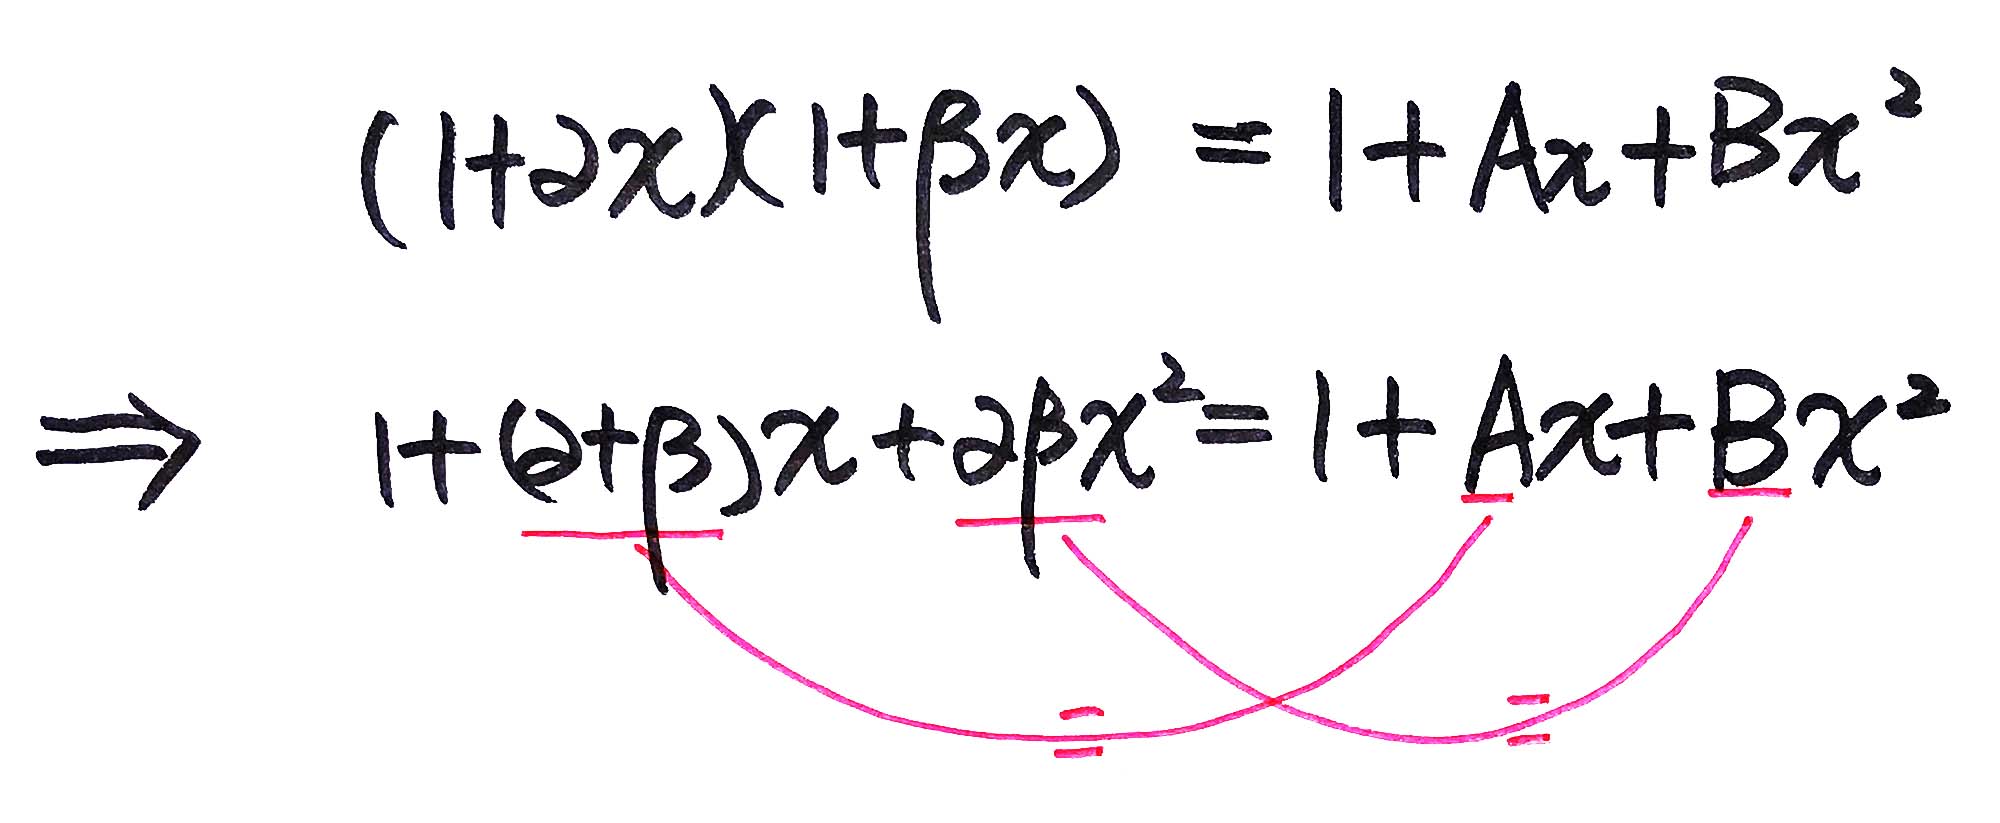 (1+∂x)(1+βx) = 1+Ax+Bx²
⇒ 1+(∂+β)x+∂βx² = 1+Ax+Bx²
= =